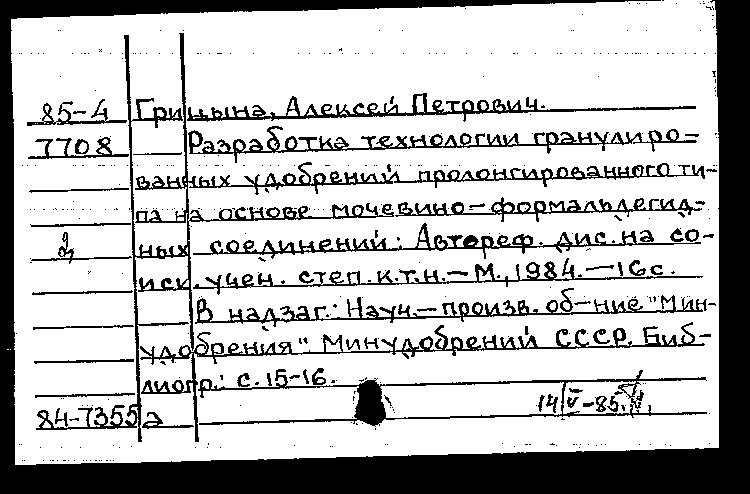 85-4 Грицына, Алексей Петрович.
7708 Разработка технологии гранулиро-
ванных удобрений пролонгированного ти-
па на основе мочевино-формальдегид-
ных соединений: Автореф. дис. на со-
иск. учен. степ. к.т.н. - М., 1984. - 16 с.
В надзаг.: Науч.-произв. об-ние "Мин-
удобрения". Минудобрений СССР. Биб-
лиогр.: с. 15-16.
84-7355а 14/V-85.